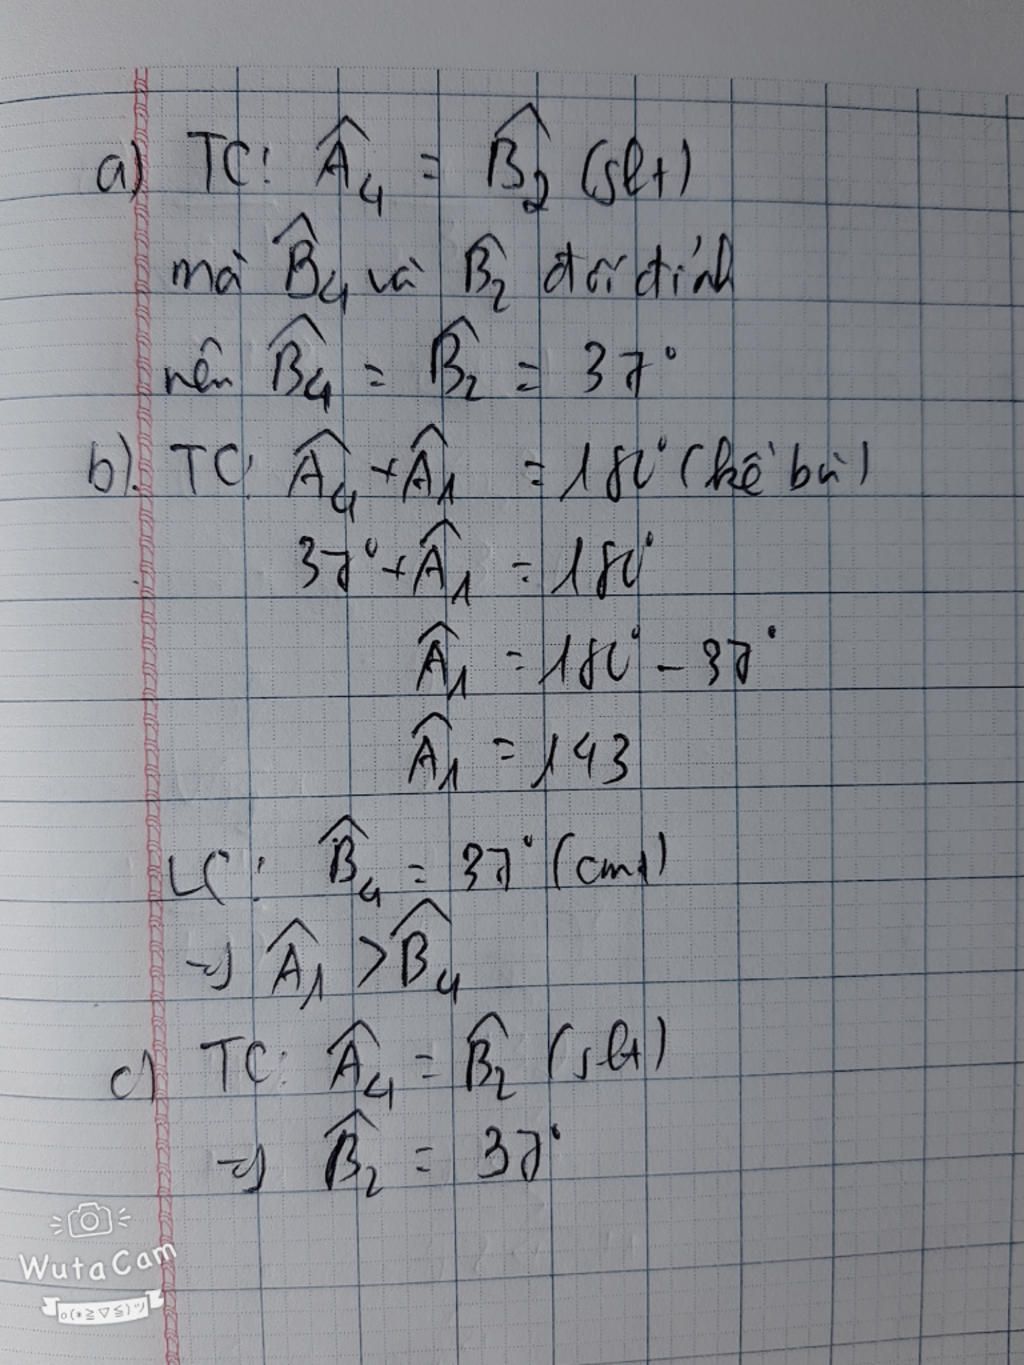 a) TC: Â₄ = B̂₂ (slt)
mà B̂₄ và B̂₂ đối đỉnh
nên B̂₄ = B̂₂ = 37°
b). TC: Â₄ + Â₁ = 180° (kề bù)
37° + Â₁ = 180°
Â₁ = 180° - 37°
Â₁ = 143
LC: B̂₄ = 37° (cmt)
=> Â₁ > B̂₄
c) TC: Â₄ = B̂₂ (slt)
=> B̂₂ = 37°
WutaCam
o(*≧▽≦)ツ